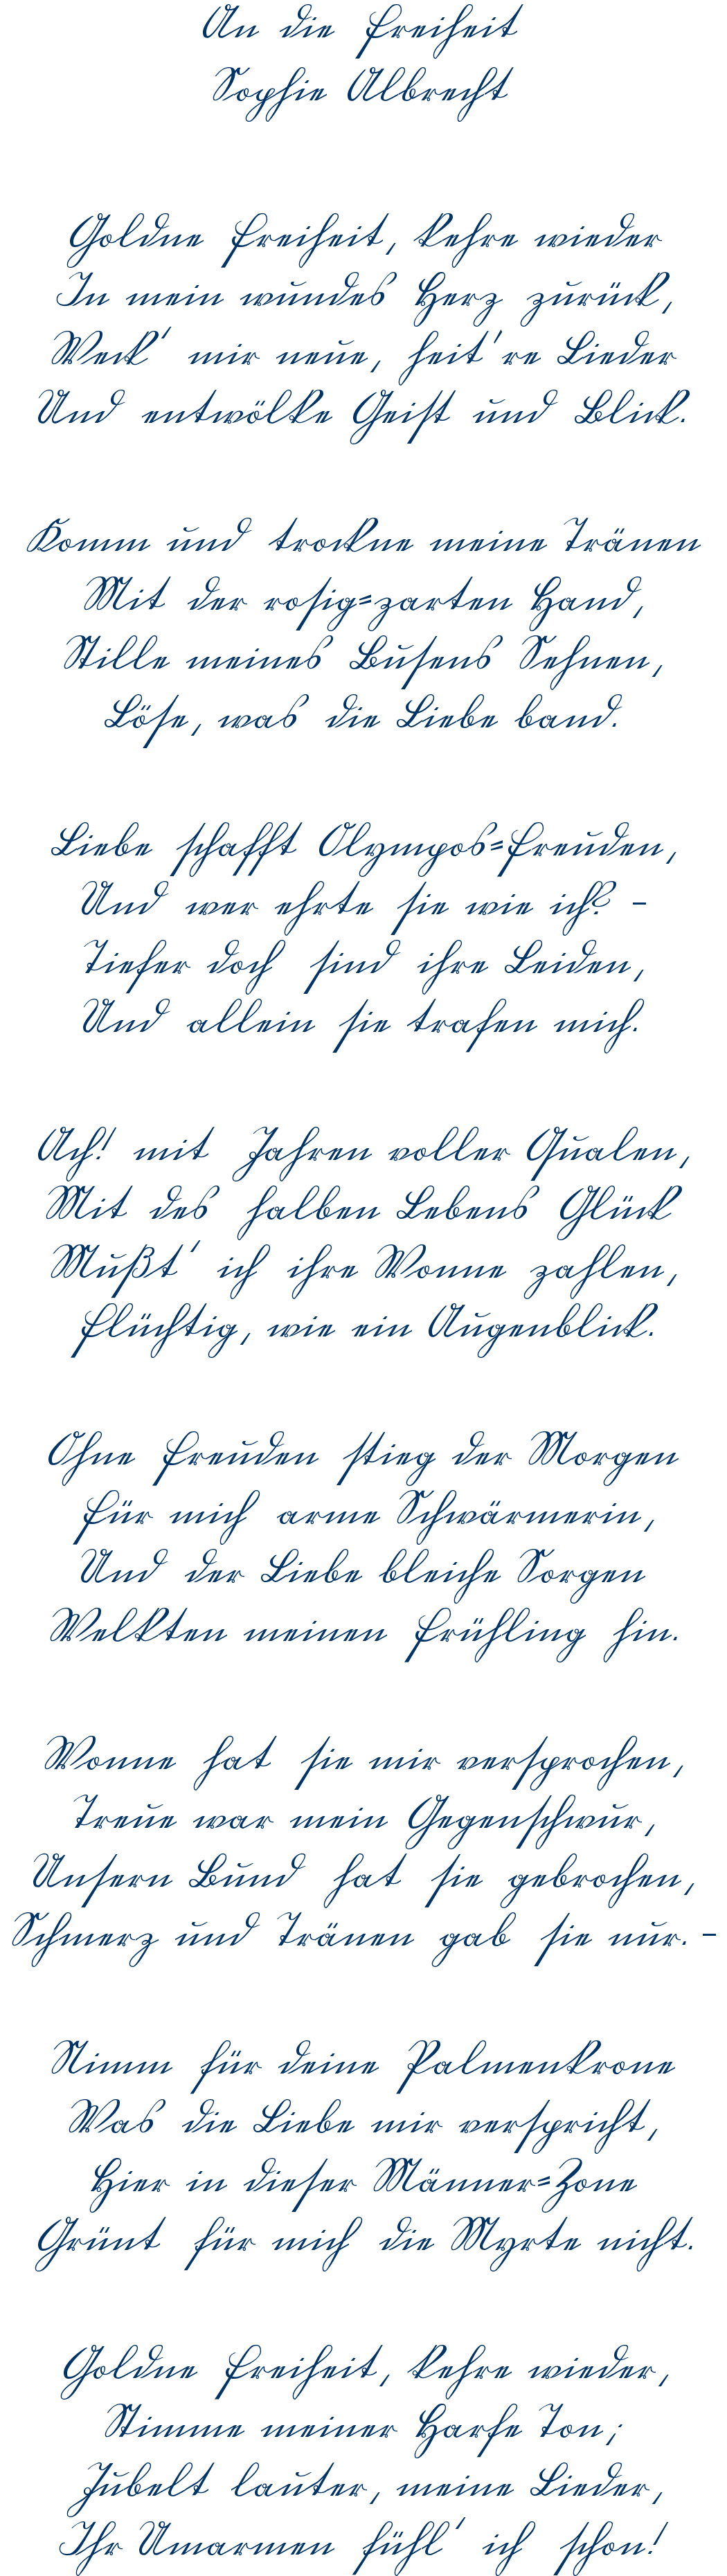 An die Freiheit
Sophie Albrecht
Goldne Freiheit, kehre wieder
In mein wundes Herz zurück,
Weck' mir neue, heit're Lieder
Und entwölke Geist und Blick.
Komm und trockne meine Tränen
Mit der rosig-zarten Hand,
Stille meines Busens Sehnen,
Löse, was die Liebe band.
Liebe schafft Olympos-Freuden,
Und wer ehrte sie wie ich? –
Tiefer doch sind ihre Leiden,
Und allein sie trafen mich.
Ach! mit Jahren voller Qualen,
Mit des halben Lebens Glück
Mußt' ich ihre Wonne zahlen,
Flüchtig, wie ein Augenblick.
Ohne Freuden stieg der Morgen
Für mich arme Schwärmerin,
Und der Liebe bleiche Sorgen
Welkten meinen Frühling hin.
Wonne hat sie mir versprochen,
Treue war mein Gegenschwur,
Unsern Bund hat sie gebrochen,
Schmerz und Tränen gab sie nur. –
Nimm für deine Palmenkrone
Was die Liebe mir verspricht,
Hier in dieser Männer-Zone
Grünt für mich die Myrte nicht.
Goldne Freiheit, kehre wieder,
Stimme meiner Harfe Ton;
Jubelt lauter, meine Lieder,
Ihr Umarmen fühl' ich schon!